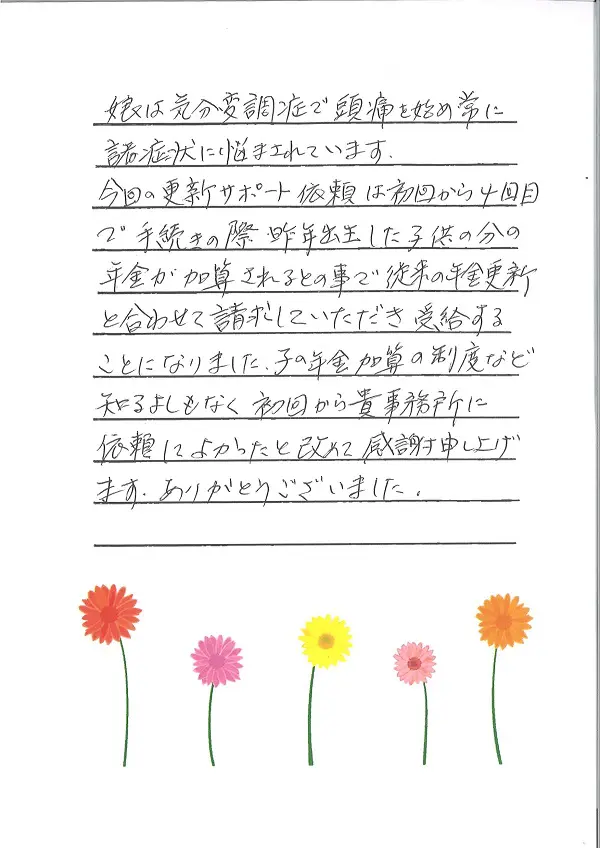 娘は気分変調症で頭痛を始め常に
諸症状に悩まされています.
今回の更新サポート依頼は初回から4回目
で手続きの際昨年出生した子供の分の
年金が加算されるとの事で従来の年金更新
と合わせて請求していただき受給する
ことになりました.子の年金加算の制度など
知るよしもなく初回から貴事務所に
依頼してよかったと改めて感謝申し上げ
ます.ありがとうございました.